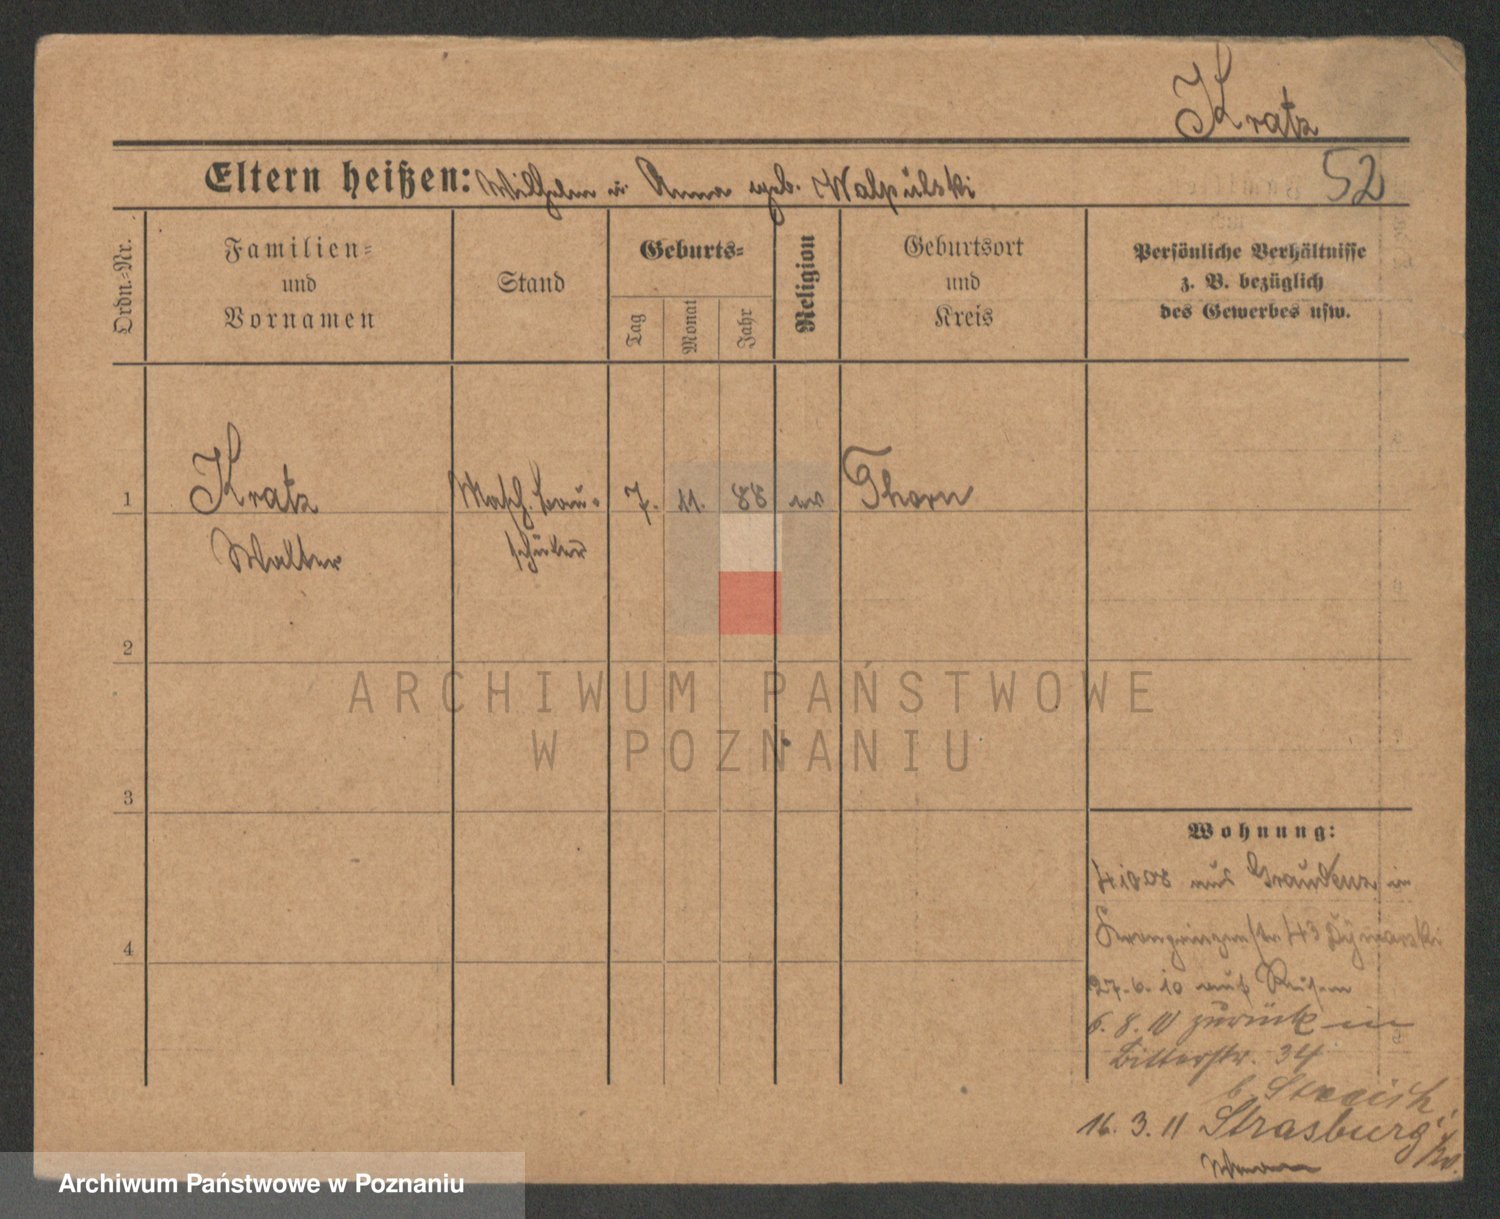 Kratz
Eltern heißen: Wilhelm u. Anna geb. Walpulski
52
Ordn.-Nr.
Familien-
und
Vornamen
Stand
Geburts-
Tag
Monat
Jahr
Religion
Geburtsort
und
Kreis
Persönliche Verhältnisse
z. B. bezüglich
des Gewerbes usw.
1 Kratz Masch. bau- 7. 11. 88 ev Thorn
Walter schüler
2
ARCHIWUM PAŃSTWOWE
W POZNANIU
3
Wohnung:
4 1908 aus Graudenz in
Kronprinzenstr 43
4
27.6.10 auf Reisen
6.8.10 zurück in
Bitterstr. 34
b.
16.3.11 Strasburg
Archiwum Państwowe w Poznaniu